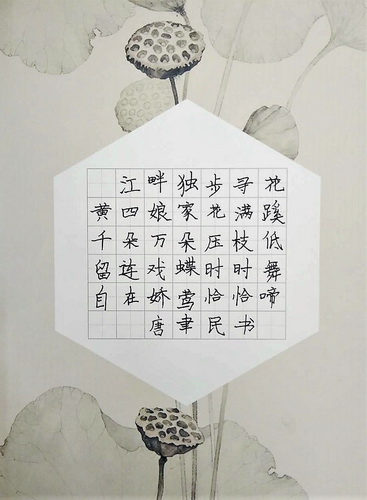 江畔独步寻花
黄四娘家花满蹊
千朵万朵压枝低
留连戏蝶时时舞
自在娇莺恰恰啼
唐聿民书